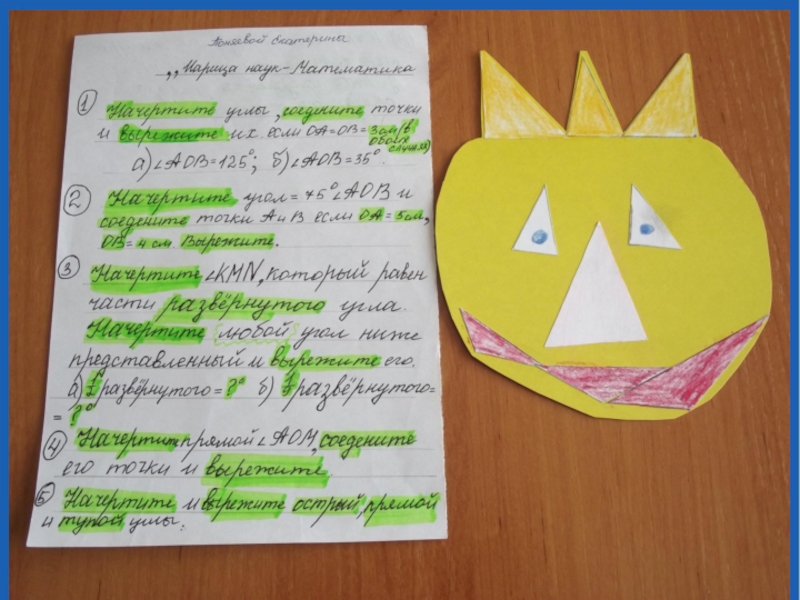 Поняевой Екатерины
,,Царица наук-Математика
1 Начертите углы, соедените точки
и вырежите их. если OA=OB=3см(в
обоих
случаях)
а)∠AOB=125°; б)∠AOB=35°.
2 Начертите угол=75°∠AOB и
соедените точки A и B если OA=5см,
OB=4 см. Вырежите.
3 Начертите ∠KMN, который равен
части развёрнутого угла.
Начертите любой угол ниже
представленный и вырежите его.
а) развёрнутого=?° б) развёрнутого=
=?°
4 Начертите прямой ∠AOM, соедените
его точки и вырежите.
5 Начертите и вырежите острый, прямой
и тупой углы.